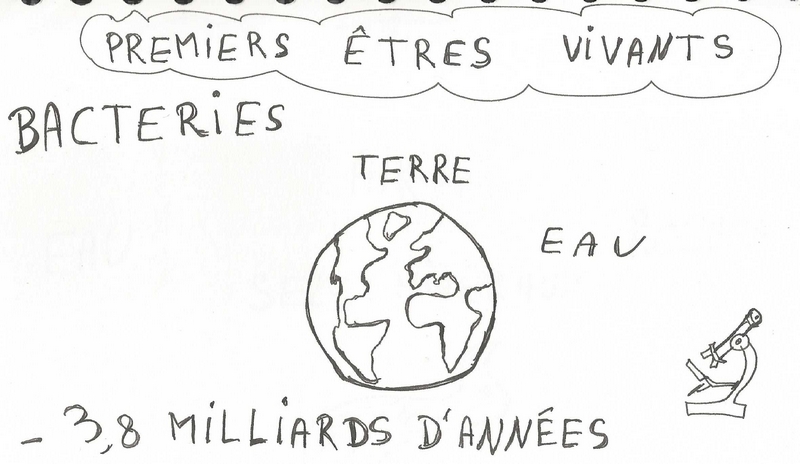 PREMIERS ÊTRES VIVANTS
BACTERIES
TERRE
EAU
- 3,8 MILLIARDS D'ANNÉES